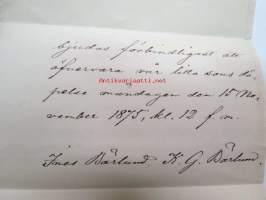 bjudas förbindligast att
öfvervara vår lilla sons dö-
pelse måndagen den 15 No-
vember 1875, kl. 12 f. m.
Ines Bärlund. K. G. Bärlund.
Antikvariaatti.fi